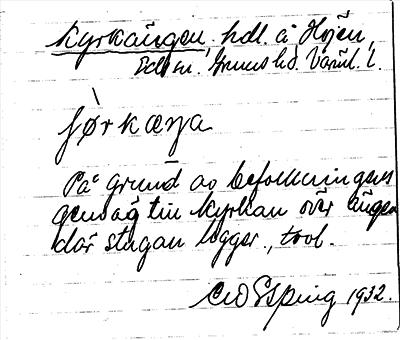 Kyrkängen, hdl. å Höjen,
Eds sn. Grums hd. Värml. l.
jørkæŋa
På grund av befolkningens
genväg till kyrkan över ängen
där stugan ligger, trol.
C W Esping 1932.